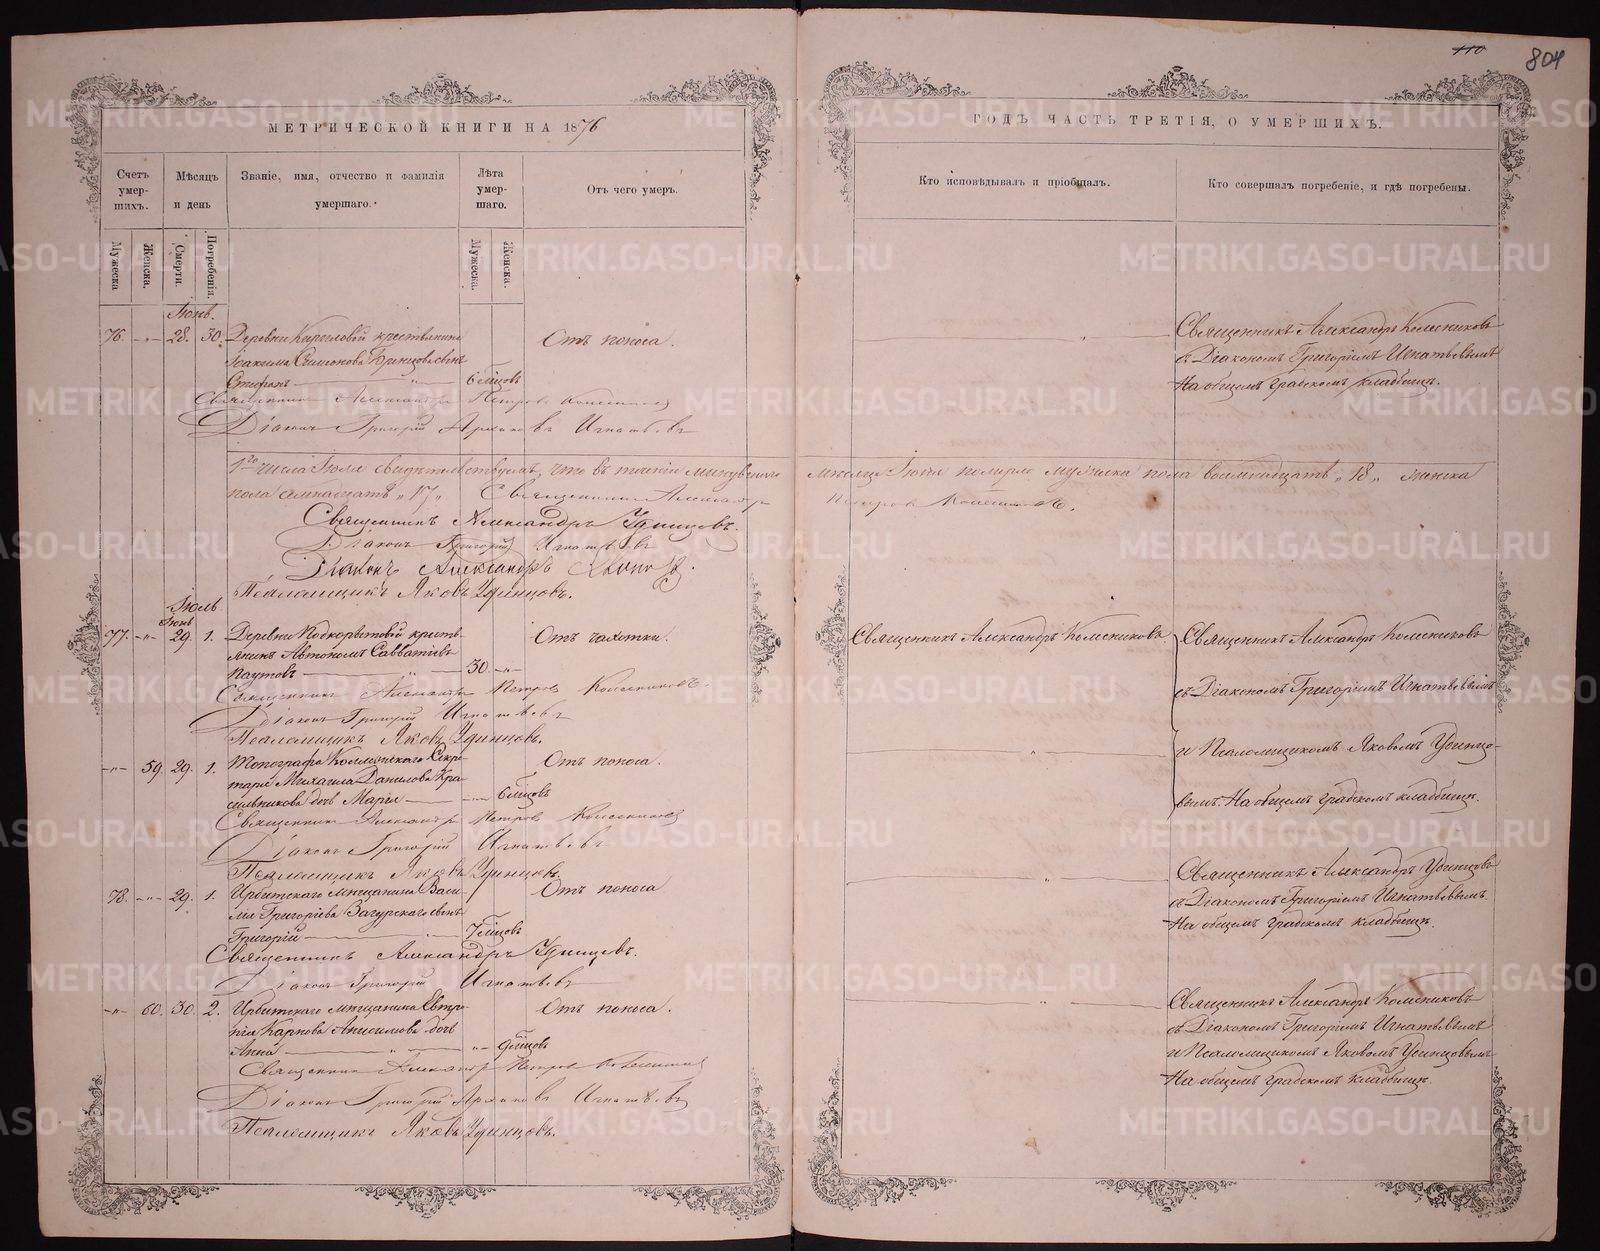 110
804
МЕТРИЧЕСКОЙ КНИГИ НА 1876
ГОДЪ ЧАСТЬ ТРЕТІЯ, О УМЕРШИХЪ.
Счетъ умер- шихъ.
Мѣсяцъ и день
Званіе, имя, отчество и фамилія умершаго.
Лѣта умер- шаго.
Отъ чего умеръ.
Кто исповѣдывалъ и пріобщалъ.
Кто совершалъ погребеніе, и гдѣ погребены.
Мужеска
Женска.
Смерти.
Погребенія.
Мужеска.
Женска.
Іюнь.
76. -"- 28. 30. Деревни Кириловой крестьянина
Іоакима Симеонова сынъ
Стефанъ 6 мѣсцовъ
Отъ поноса.
Священникъ Александръ Колесниковъ
съ Діакономъ Григоріемъ Игнатьевымъ
На общемъ градскомъ кладбищѣ.
Священникъ Александръ Петровъ
Діаконъ Григорій Игнатьевъ
1го числа Іюля свидѣтельствуемъ, что въ теченіи минувшаго
мѣсяца Іюня померло мужеска пола восемнадцать "18" женска
пола семнадцать "17" Священникъ Александръ
Петровъ
Священникъ Александръ Удинцевъ.
Діаконъ Григорій Игнатьевъ
Діаконъ Александръ
Псаломщикъ Яковъ Удинцовъ.
Іюль
Іюнь
77. -"- 29. 1. Деревни Подкорытовой кресть-
янинъ Автономъ Савватіевъ
Паутовъ 30 -"-
Отъ чахотки.
Священникъ Александръ Колесниковъ
Священникъ Александръ Колесниковъ
съ Діакономъ Григоріемъ Игнатьевымъ
Священникъ Александръ Петровъ Колесниковъ
Діаконъ Григорій Игнатьевъ
Псаломщикъ Яковъ Удинцовъ.
-"- 59. 29. 1. Топографа Секре-
таря Михаила Данилова Кра-
сильникова дочь Марія -"- 6 мѣсцовъ
Отъ поноса.
и Псаломщикомъ Яковомъ Удинцо-
вымъ. На общемъ градскомъ кладбищѣ.
Священникъ Александръ Петровъ Колесниковъ
Діаконъ Григорій Игнатьевъ
Псаломщикъ Яковъ Удинцовъ.
78. -"- 29. 1. Ирбитскаго мѣщанина Васи-
лія Григоріева Загурскаго сынъ
Григорій 7 мѣсцовъ
Отъ поноса
Священникъ Александръ Удинцовъ
съ Діакономъ Григоріемъ Игнатьевымъ.
На общемъ градскомъ кладбищѣ.
Священникъ Александръ Удинцевъ.
Діаконъ Григорій Игнатьевъ
-"- 60. 30. 2. Ирбитскаго мѣщанина Евтро-
пія Карпова Анисимова дочь
Анна -"- 9 мѣсцовъ
Отъ поноса.
Священникъ Александръ Колесниковъ
съ Діакономъ Григоріемъ Игнатьевымъ
и Псаломщикомъ Яковомъ Удинцовымъ
На общемъ градскомъ кладбищѣ.
Священникъ Александръ Петровъ
Діаконъ Григорій Игнатьевъ
Псаломщикъ Яковъ Удинцовъ.
METRIKI.GASO-URAL.RU